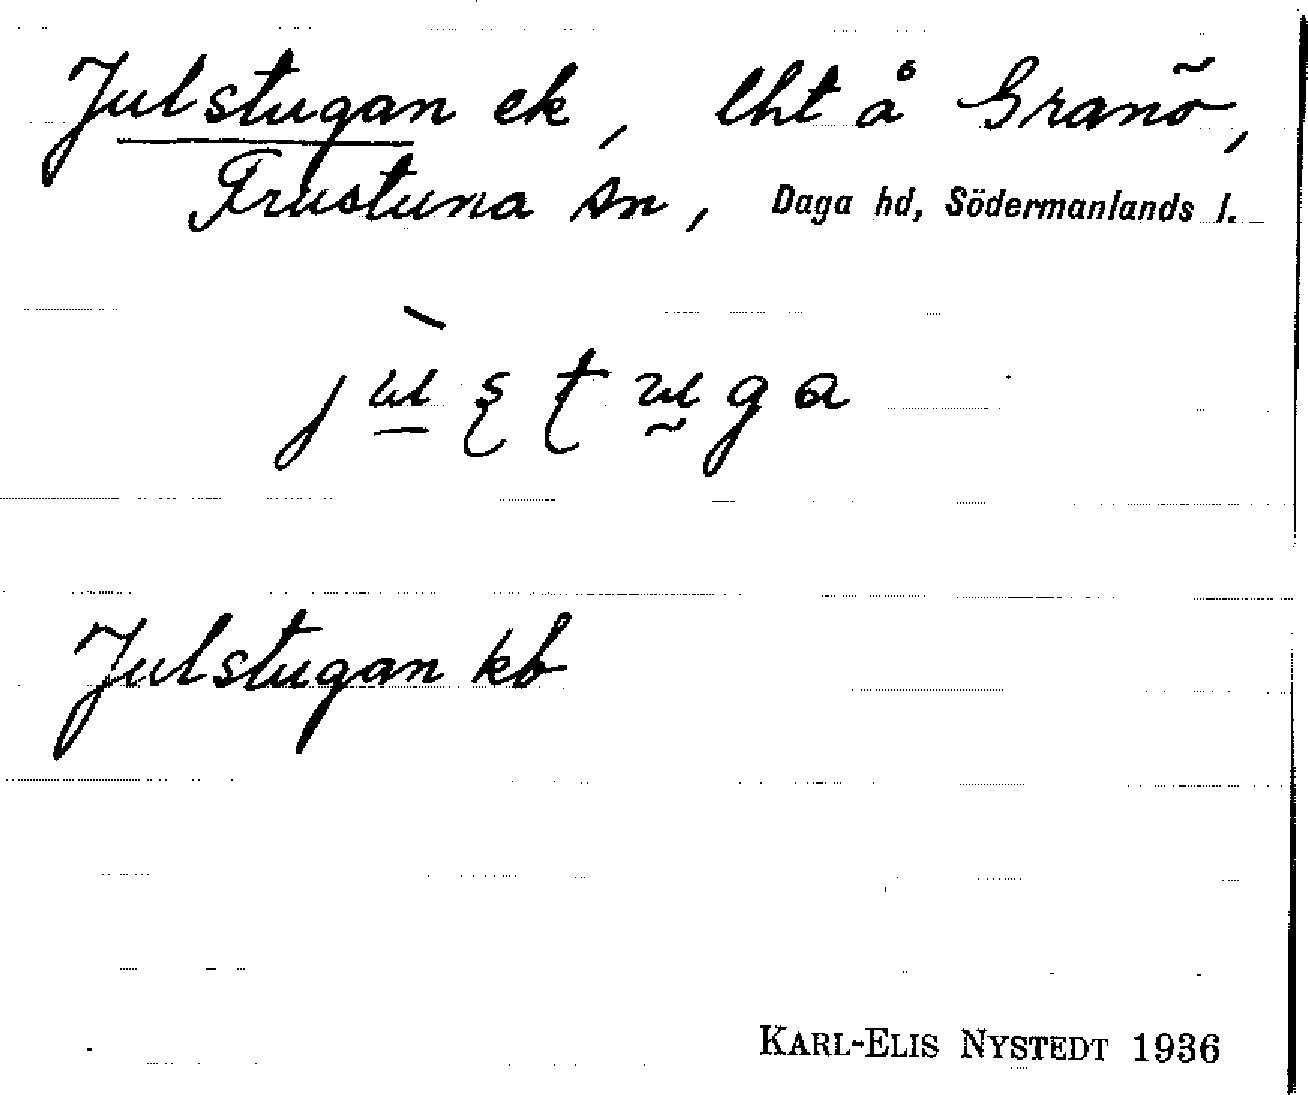 Julstugan ek, lht å Granö,
Frustuna sn, Daga hd, Södermanlands l.
Julstugan kb
KARL-ELIS NYSTEDT 1936